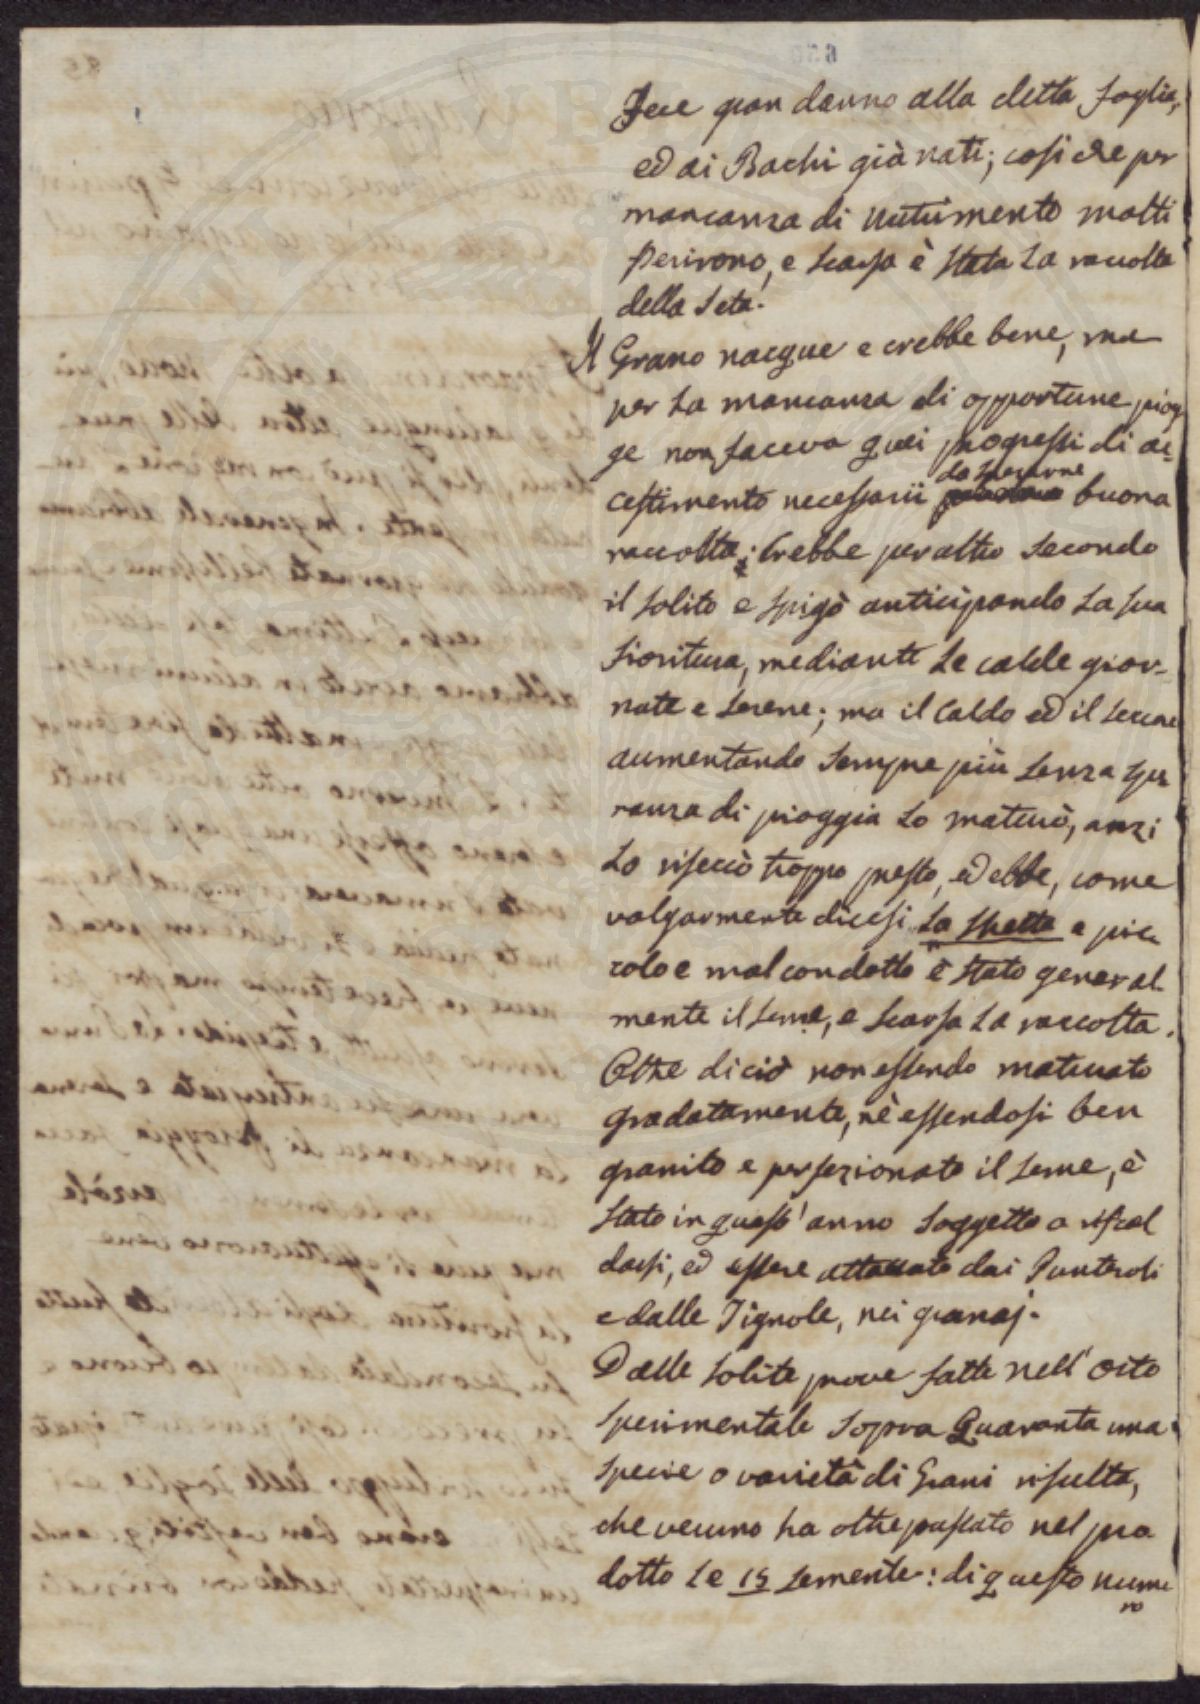 Fece gran danno alla detta foglia,
ed ai Bachi già nati; così che per
mancanza di nutrimento molti
perirono, e scarsa è stata la raccolta
della Seta.
Il Grano nacque e crebbe bene, ma
per la mancanza di opportune piog
ge non faceva quei progressi di ac=
cestimento necessarii da sperarne buona
raccolta; Crebbe per altro secondo
il solito e spigò anticipando la sua
fioritura, mediante le calde gior-
nate e serene; ma il Caldo ed il secco
aumentando sempre più senza spe
ranza di pioggia lo maturò, anzi
lo riseccò troppo presto, ed ebbe, come
volgarmente dicesi la stretta e pic
colo e mal condotto è stato general
mente il seme, e scarsa la raccolta.
Oltre di ciò non essendo maturato
gradatamente, nè essendosi ben
granito e perfezionato il seme, è
stato in quest'anno soggetto a riscal
darsi, ed essere attaccato dai Punteroli
e dalle Tignole, nei granaj.
Dalle solite prove fatte nell'Orto
sperimentale sopra Quaranta una
specie o varietà di Grani risulta,
che veruno ha oltrepassato nel pro
dotto le 15 semente: di questo nume
ro